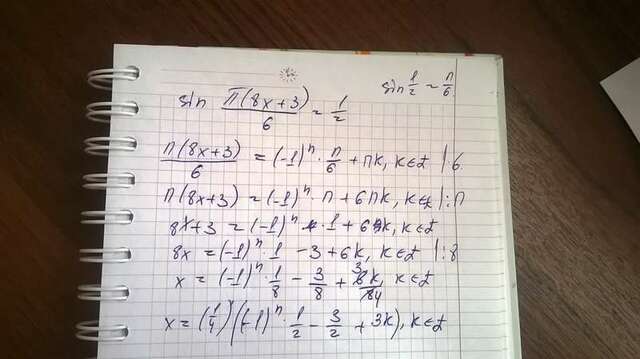 sin 1/2 = π/6
sin π(8x+3)/6 = 1/2
π(8x+3)/6 = (-1)ⁿ · π/6 + πk, k∈Z |·6
π(8x+3) = (-1)ⁿ · π + 6πk, k∈Z |:π
8x+3 = (-1)ⁿ · 1 + 6k, k∈Z
8x = (-1)ⁿ · 1 - 3 + 6k, k∈Z |:8
x = (-1)ⁿ · 1/8 - 3/8 + 3k/4, k∈Z
x = (1/4)((-1)ⁿ · 1/2 - 3/2 + 3k), k∈Z